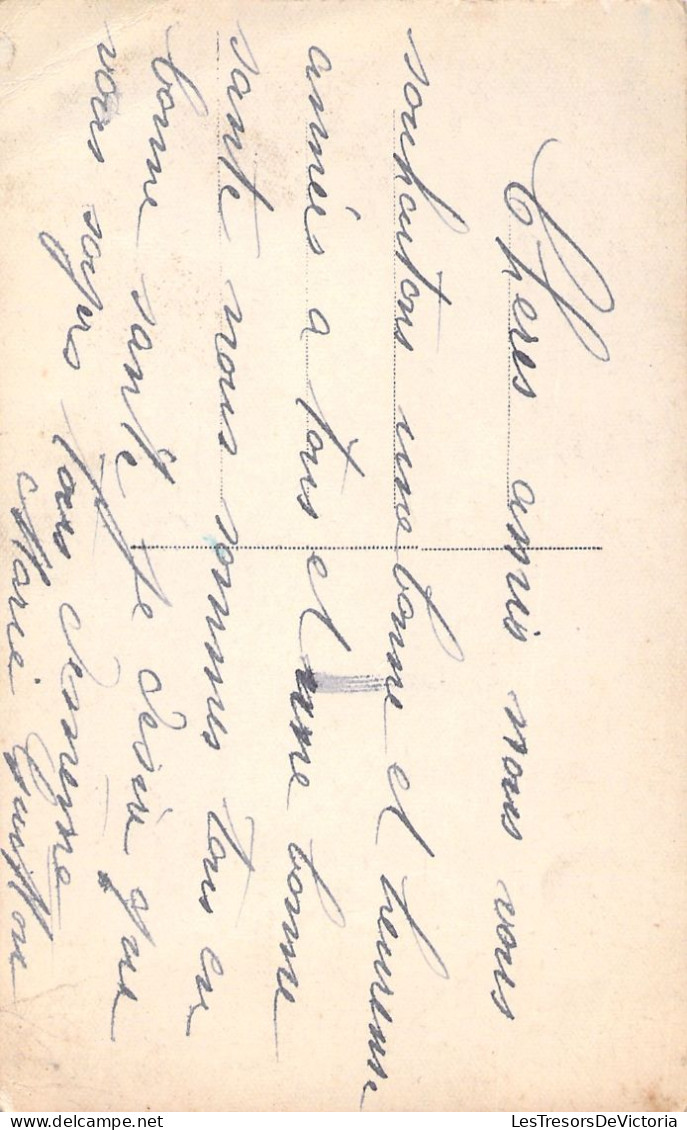 Cheres amis nous vous
souhaitons une bonne et heureuse
année a tous et une bonne
santé nous sommes tous en
bonne santé Je désire que
vous soyez tous de meme
Marie
LesTresorsDeVictoria